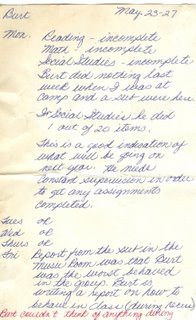 Burt May 23-27
Mon. Reading - incomplete
Math - incomplete
Social Studies - incomplete
Burt did nothing last
week when I was at
camp and a sub were here
In Social Studies he did
1 out of 20 items.
This is a good indication of
what will be going on
next year. He needs
constant supervision in order
to get any assignments
completed.
Tues ok
Wed ok
Thurs ok
Fri Report from the sub in the
music room was that Burt
was the worst behaved
in the group. Burt is
writing a report on how to
behave in class (during recess)
Burt couldn't think of anything during